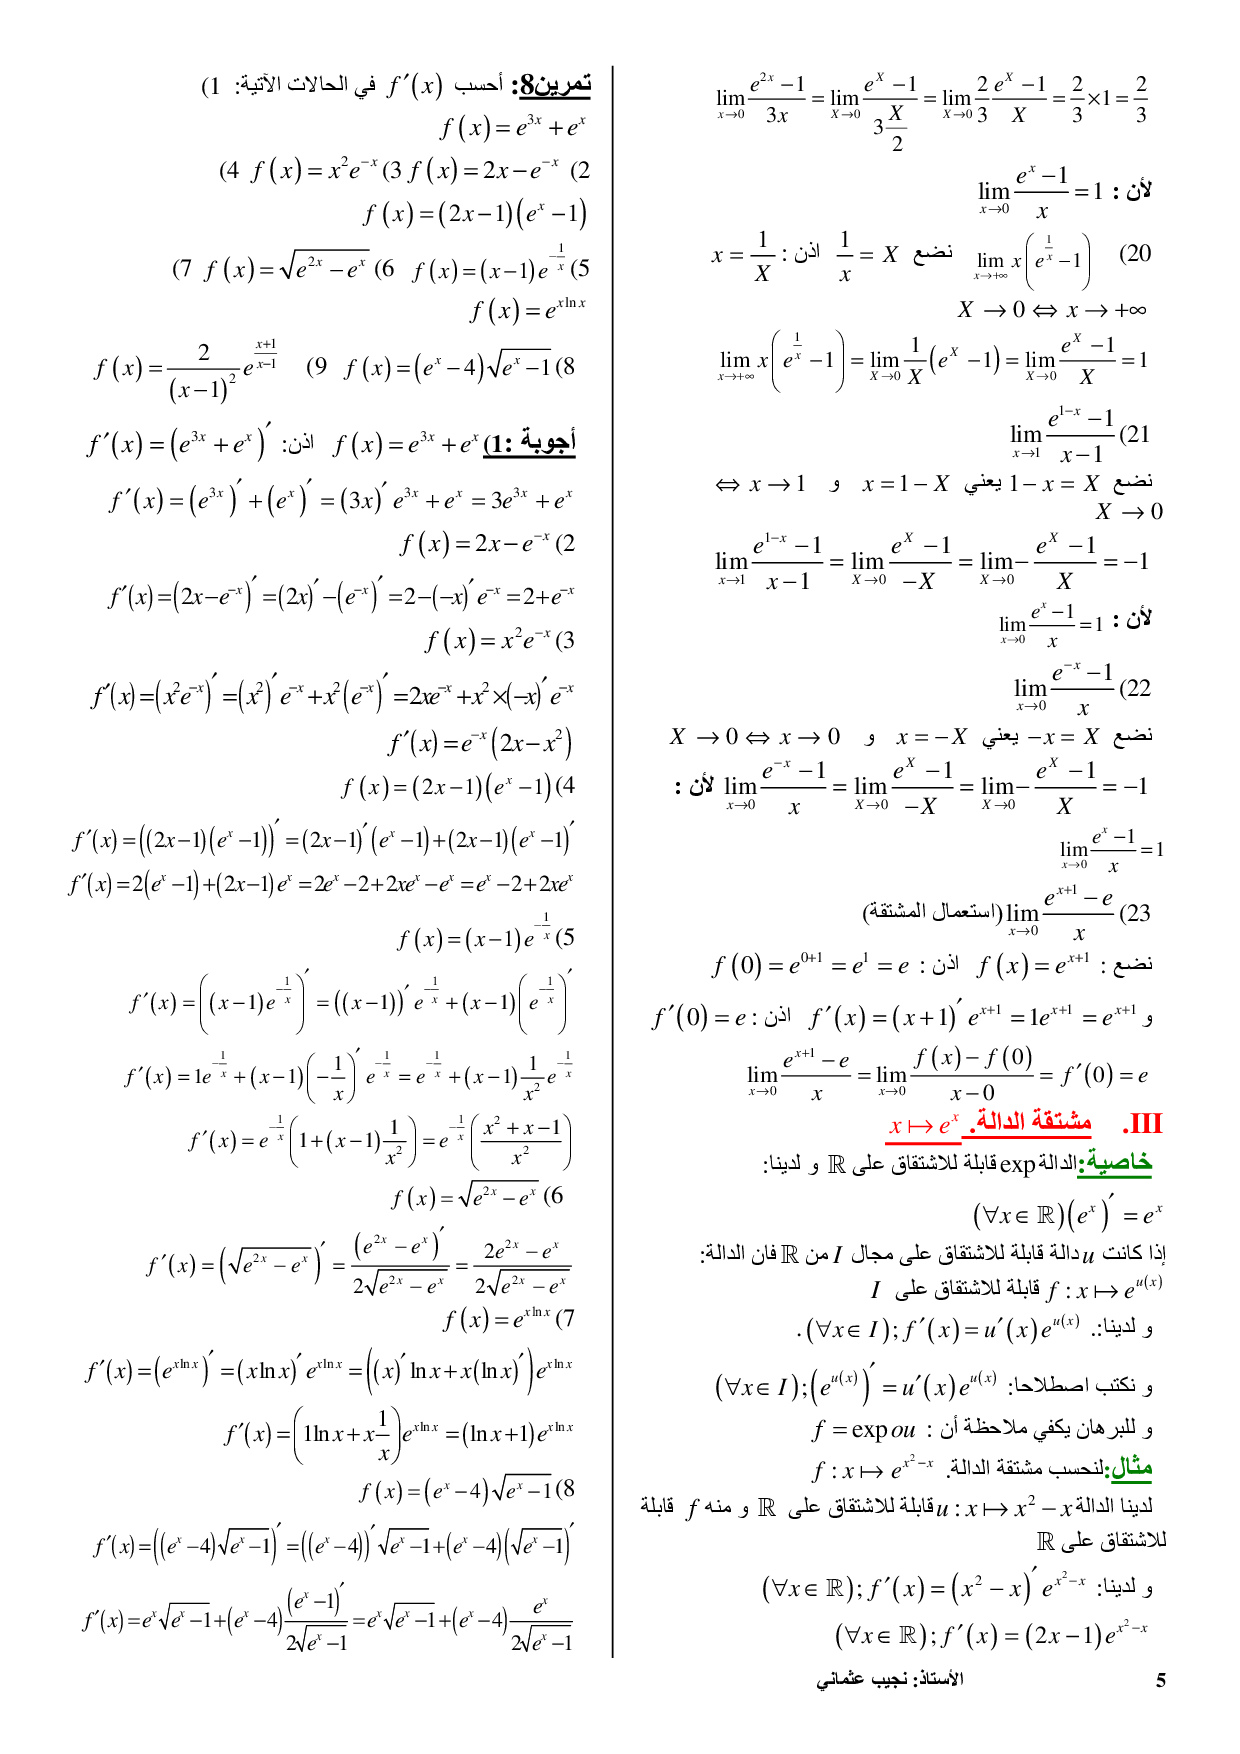 $\lim_{x\to 0}\frac{e^{2x}-1}{3x}=\lim_{X\to 0}\frac{e^{X}-1}{3\frac{X}{2}}=\lim_{X\to 0}\frac{2}{3}\frac{e^{X}-1}{X}=\frac{2}{3}\times 1=\frac{2}{3}$
لأن : $\lim_{x\to 0}\frac{e^{x}-1}{x}=1$
(20 $\lim_{x\to +\infty} x\left(e^{\frac{1}{x}}-1\right)$ نضع $\frac{1}{x}=X$ اذن : $x=\frac{1}{X}$
$X\to 0 \Leftrightarrow x\to +\infty$
$\lim_{x\to +\infty} x\left(e^{\frac{1}{x}}-1\right)=\lim_{X\to 0}\frac{1}{X}\left(e^{X}-1\right)=\lim_{X\to 0}\frac{e^{X}-1}{X}=1$
(21 $\lim_{x\to 1}\frac{e^{1-x}-1}{x-1}$
نضع $1-x=X$ يعني $x=1-X$ و $x\to 1 \Leftrightarrow$
$X\to 0$
$\lim_{x\to 1}\frac{e^{1-x}-1}{x-1}=\lim_{X\to 0}\frac{e^{X}-1}{-X}=\lim_{X\to 0}-\frac{e^{X}-1}{X}=-1$
لأن : $\lim_{x\to 0}\frac{e^{x}-1}{x}=1$
(22 $\lim_{x\to 0}\frac{e^{-x}-1}{x}$
نضع $-x=X$ يعني $x=-X$ و $X\to 0 \Leftrightarrow x\to 0$
$\lim_{x\to 0}\frac{e^{-x}-1}{x}=\lim_{X\to 0}\frac{e^{X}-1}{-X}=\lim_{X\to 0}-\frac{e^{X}-1}{X}=-1$ لأن :
$\lim_{x\to 0}\frac{e^{x}-1}{x}=1$
(23 $\lim_{x\to 0}\frac{e^{x+1}-e}{x}$ (استعمال المشتقة)
نضع : $f(x)=e^{x+1}$ اذن : $f(0)=e^{0+1}=e^{1}=e$
و $f'(x)=(x+1)'e^{x+1}=1e^{x+1}=e^{x+1}$ اذن : $f'(0)=e$
$\lim_{x\to 0}\frac{e^{x+1}-e}{x}=\lim_{x\to 0}\frac{f(x)-f(0)}{x-0}=f'(0)=e$
III. مشتقة الدالة. $x\mapsto e^{x}$
خاصية: الدالة exp قابلة للاشتقاق على $\mathbb{R}$ و لدينا:
$(\forall x\in\mathbb{R})(e^{x})'=e^{x}$
إذا كانت $u$ دالة قابلة للاشتقاق على مجال $I$ من $\mathbb{R}$ فان الدالة:
$f:x\mapsto e^{u(x)}$ قابلة للاشتقاق على $I$
و لدينا:. $(\forall x\in I);f'(x)=u'(x)e^{u(x)}$ .
و نكتب اصطلاحا: $(\forall x\in I);\left(e^{u(x)}\right)'=u'(x)e^{u(x)}$
و للبرهان يكفي ملاحظة أن : $f=\exp ou$
مثال: لنحسب مشتقة الدالة. $f:x\mapsto e^{x^{2}-x}$
لدينا الدالة $u:x\mapsto x^{2}-x$ قابلة للاشتقاق على $\mathbb{R}$ و منه $f$ قابلة
للاشتقاق على $\mathbb{R}$
و لدينا: $(\forall x\in\mathbb{R});f'(x)=(x^{2}-x)'e^{x^{2}-x}$
$(\forall x\in\mathbb{R});f'(x)=(2x-1)e^{x^{2}-x}$
تمرين8: أحسب $f'(x)$ في الحالات الآتية: (1
$f(x)=e^{3x}+e^{x}$
(2 $f(x)=2x-e^{-x}$ (3 $f(x)=x^{2}e^{-x}$ (4
$f(x)=(2x-1)(e^{x}-1)$
(5 $f(x)=(x-1)e^{-\frac{1}{x}}$ (6 $f(x)=\sqrt{e^{2x}-e^{x}}$ (7
$f(x)=e^{x\ln x}$
(8 $f(x)=(e^{x}-4)\sqrt{e^{x}-1}$ (9 $f(x)=\frac{2}{(x-1)^{2}}e^{\frac{x+1}{x-1}}$
أجوبة :1) $f(x)=e^{3x}+e^{x}$ اذن: $f'(x)=(e^{3x}+e^{x})'$
$f'(x)=(e^{3x})'+(e^{x})'=(3x)'e^{3x}+e^{x}=3e^{3x}+e^{x}$
(2 $f(x)=2x-e^{-x}$
$f'(x)=(2x-e^{-x})'=(2x)'-(e^{-x})'=2-(-x)'e^{-x}=2+e^{-x}$
(3 $f(x)=x^{2}e^{-x}$
$f'(x)=(x^{2}e^{-x})'=(x^{2})'e^{-x}+x^{2}(e^{-x})'=2xe^{-x}+x^{2}\times(-x)'e^{-x}$
$f'(x)=e^{-x}(2x-x^{2})$
(4 $f(x)=(2x-1)(e^{x}-1)$
$f'(x)=((2x-1)(e^{x}-1))'=(2x-1)'(e^{x}-1)+(2x-1)(e^{x}-1)'$
$f'(x)=2(e^{x}-1)+(2x-1)e^{x}=2e^{x}-2+2xe^{x}-e^{x}=e^{x}-2+2xe^{x}$
(5 $f(x)=(x-1)e^{-\frac{1}{x}}$
$f'(x)=\left((x-1)e^{-\frac{1}{x}}\right)'=((x-1))'e^{-\frac{1}{x}}+(x-1)\left(e^{-\frac{1}{x}}\right)'$
$f'(x)=1e^{-\frac{1}{x}}+(x-1)\left(-\frac{1}{x}\right)'e^{-\frac{1}{x}}=e^{-\frac{1}{x}}+(x-1)\frac{1}{x^{2}}e^{-\frac{1}{x}}$
$f'(x)=e^{-\frac{1}{x}}\left(1+(x-1)\frac{1}{x^{2}}\right)=e^{-\frac{1}{x}}\left(\frac{x^{2}+x-1}{x^{2}}\right)$
(6 $f(x)=\sqrt{e^{2x}-e^{x}}$
$f'(x)=\left(\sqrt{e^{2x}-e^{x}}\right)'=\frac{(e^{2x}-e^{x})'}{2\sqrt{e^{2x}-e^{x}}}=\frac{2e^{2x}-e^{x}}{2\sqrt{e^{2x}-e^{x}}}$
(7 $f(x)=e^{x\ln x}$
$f'(x)=(e^{x\ln x})'=(x\ln x)'e^{x\ln x}=\left((x)'\ln x+x(\ln x)'\right)e^{x\ln x}$
$f'(x)=\left(1\ln x+x\frac{1}{x}\right)e^{x\ln x}=(\ln x+1)e^{x\ln x}$
(8 $f(x)=(e^{x}-4)\sqrt{e^{x}-1}$
$f'(x)=\left((e^{x}-4)\sqrt{e^{x}-1}\right)'=((e^{x}-4))'\sqrt{e^{x}-1}+(e^{x}-4)\left(\sqrt{e^{x}-1}\right)'$
$f'(x)=e^{x}\sqrt{e^{x}-1}+(e^{x}-4)\frac{(e^{x}-1)'}{2\sqrt{e^{x}-1}}=e^{x}\sqrt{e^{x}-1}+(e^{x}-4)\frac{e^{x}}{2\sqrt{e^{x}-1}}$
الأستاذ: نجيب عثماني 5